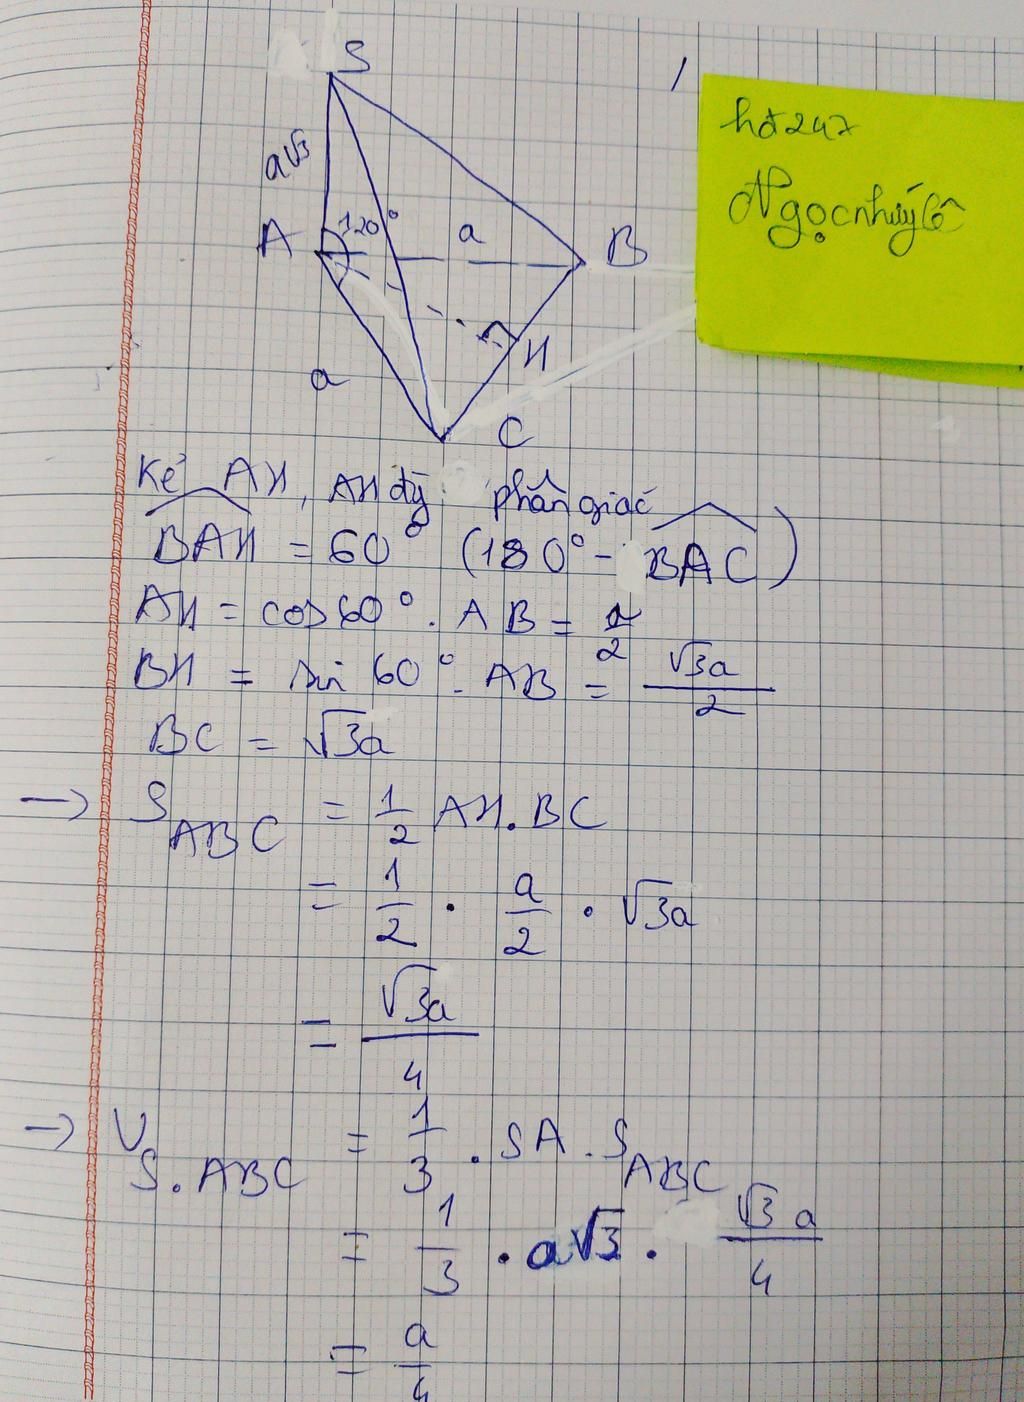 S
a√3
A
120°
a
B
H
a
C
hđ247
Ngọcnhưýlê
Kẻ AH, AH đg phân giác
BAH = 60° (180° - BAC)
AH = cos60°. AB = a/2
BH = sin 60°. AB = √3a/2
BC = √3a
→ S_ABC = 1/2 AH.BC
= 1/2 . a/2 . √3a
= √3a/4
→ V_S.ABC = 1/3 . SA . S_ABC
= 1/3 . a√3 . √3 a/4
= a/4